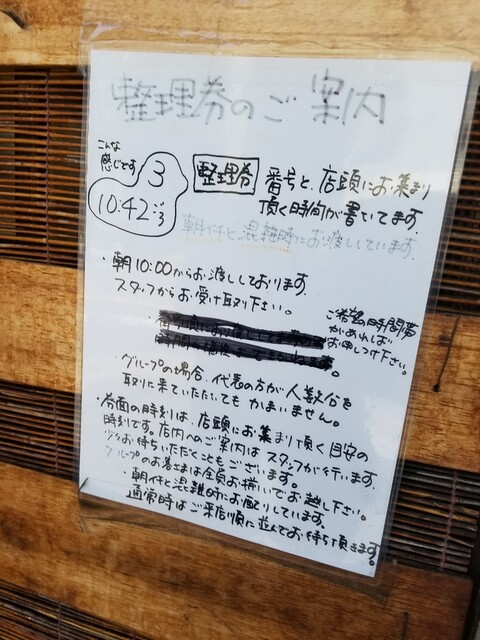 整理券のご案内
こんな
感じです
3
10:42
整理券
番号と、店頭にお集まり
頂く時間が書いてます。
朝イチと混雑時にお渡ししています。
・朝10:00からお渡ししております。
スタッフからお受け取り下さい。
ご希望の時間帯
があれば
お申しつけ下さい。
・グループの場合、代表の方が人数分を
取りに来ていただいてもかまいません。
・券面の時刻は、店頭にお集まり頂く目安の
時刻です。店内へのご案内はスタッフが行います。
少々お待ちいただくこともございます。
グループのお客さまは全員お揃いでお越し下さい。
・朝イチと混雑時にお配りしています。
通常時はご来店順に並んでお待ち頂きます。